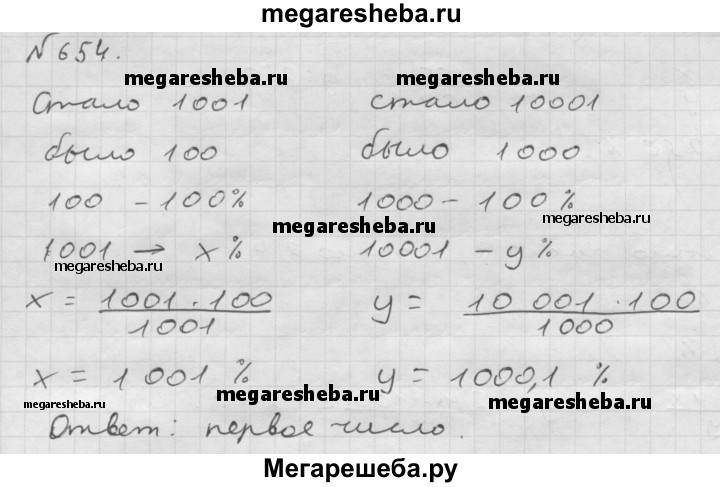 megaresheba.ru
№654.
megaresheba.ru megaresheba.ru
Стало 1001 стало 10001
было 100 было 1000
100 - 100% 1000 - 100%
megaresheba.ru megaresheba.ru
1001 → x% 10001 - y%
megaresheba.ru
x = 1001 · 100 / 1001 y = 10 001 · 100 / 1000
x = 1 001 % y = 1000,1 %
megaresheba.ru megaresheba.ru megaresheba.ru
Ответ: первое число.
Мегарешеба.ру